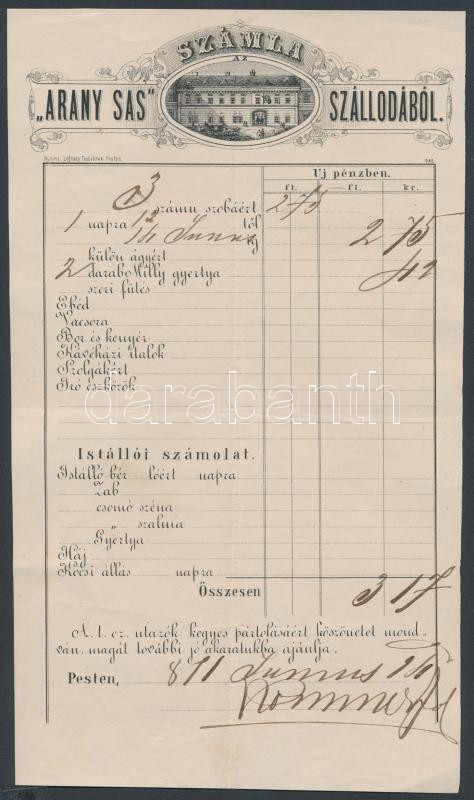 SZÁMLA
AZ
„ARANY SAS"
SZÁLLODÁBÓL.
Nyomt. Légrády Testvérek Pesten.
Uj pénzben.
ft. ft. kr.
3 számu szobáért 2 75
1 napra 13 től
14 Junius ig 2 75
külön ágyért
2 darab Milly gyertya 42
szeri fütés
Ebéd
Vacsora
Bor és kenyér
Kávéházi italok
Szolgákért
Iró eszközök
darabanth
Istállói számolat.
Istálló-bér lóért napra
Zab
csomó széna
„ szalma
Gyertya
Háj
Kocsi állás napra
Összesen 3 17
A. t. cz. utazók kegyes pártolásáért köszönetet mond-
ván, magát további jó akaratukba ajánlja.
Pesten, 871 Junius 14